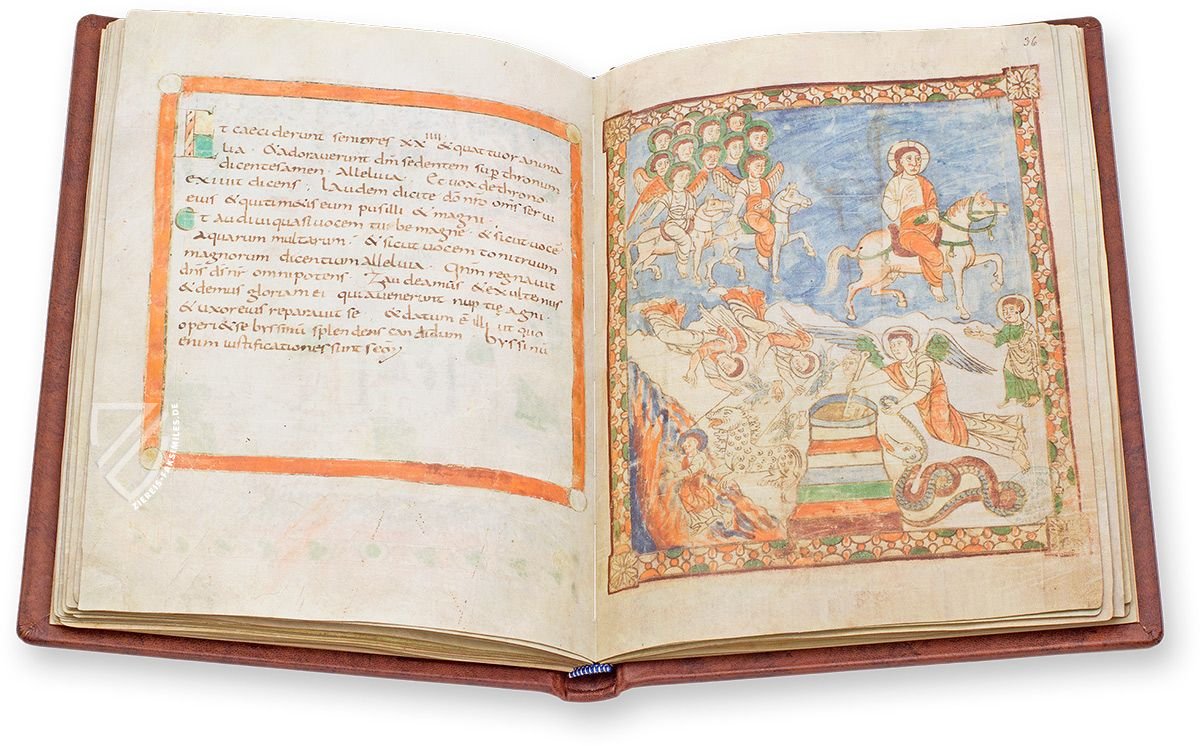 Et caeciderunt seniores xx iiii & quattuor anima
lia · & adoraverunt dm̄ sedentem sup thronum
dicentes amen · Alleluia · Et vox de throno
exivit dicens · Laudem dicite dō nrō oms servi
eius & qui timetis eum pusilli & magni ·
Et audivi quasi vocem tubę magnę · & sicut vocē
aquarum multarum · & sicut vocem tonitruum
magnorum dicentium alleluia · Qnm̄ regnavit
dn̄s ds nr̄ omnipotens · Gaudeamus & exultemus
& demus gloriam ei quia venerunt nuptię agni ·
& uxor eius preparavit se & datum ē illi ut quo
operi& se byssinū splendens candidum byssinū
enim iustificationes sunt scōɟ
36
ZIEREIS-FAKSIMILES.DE